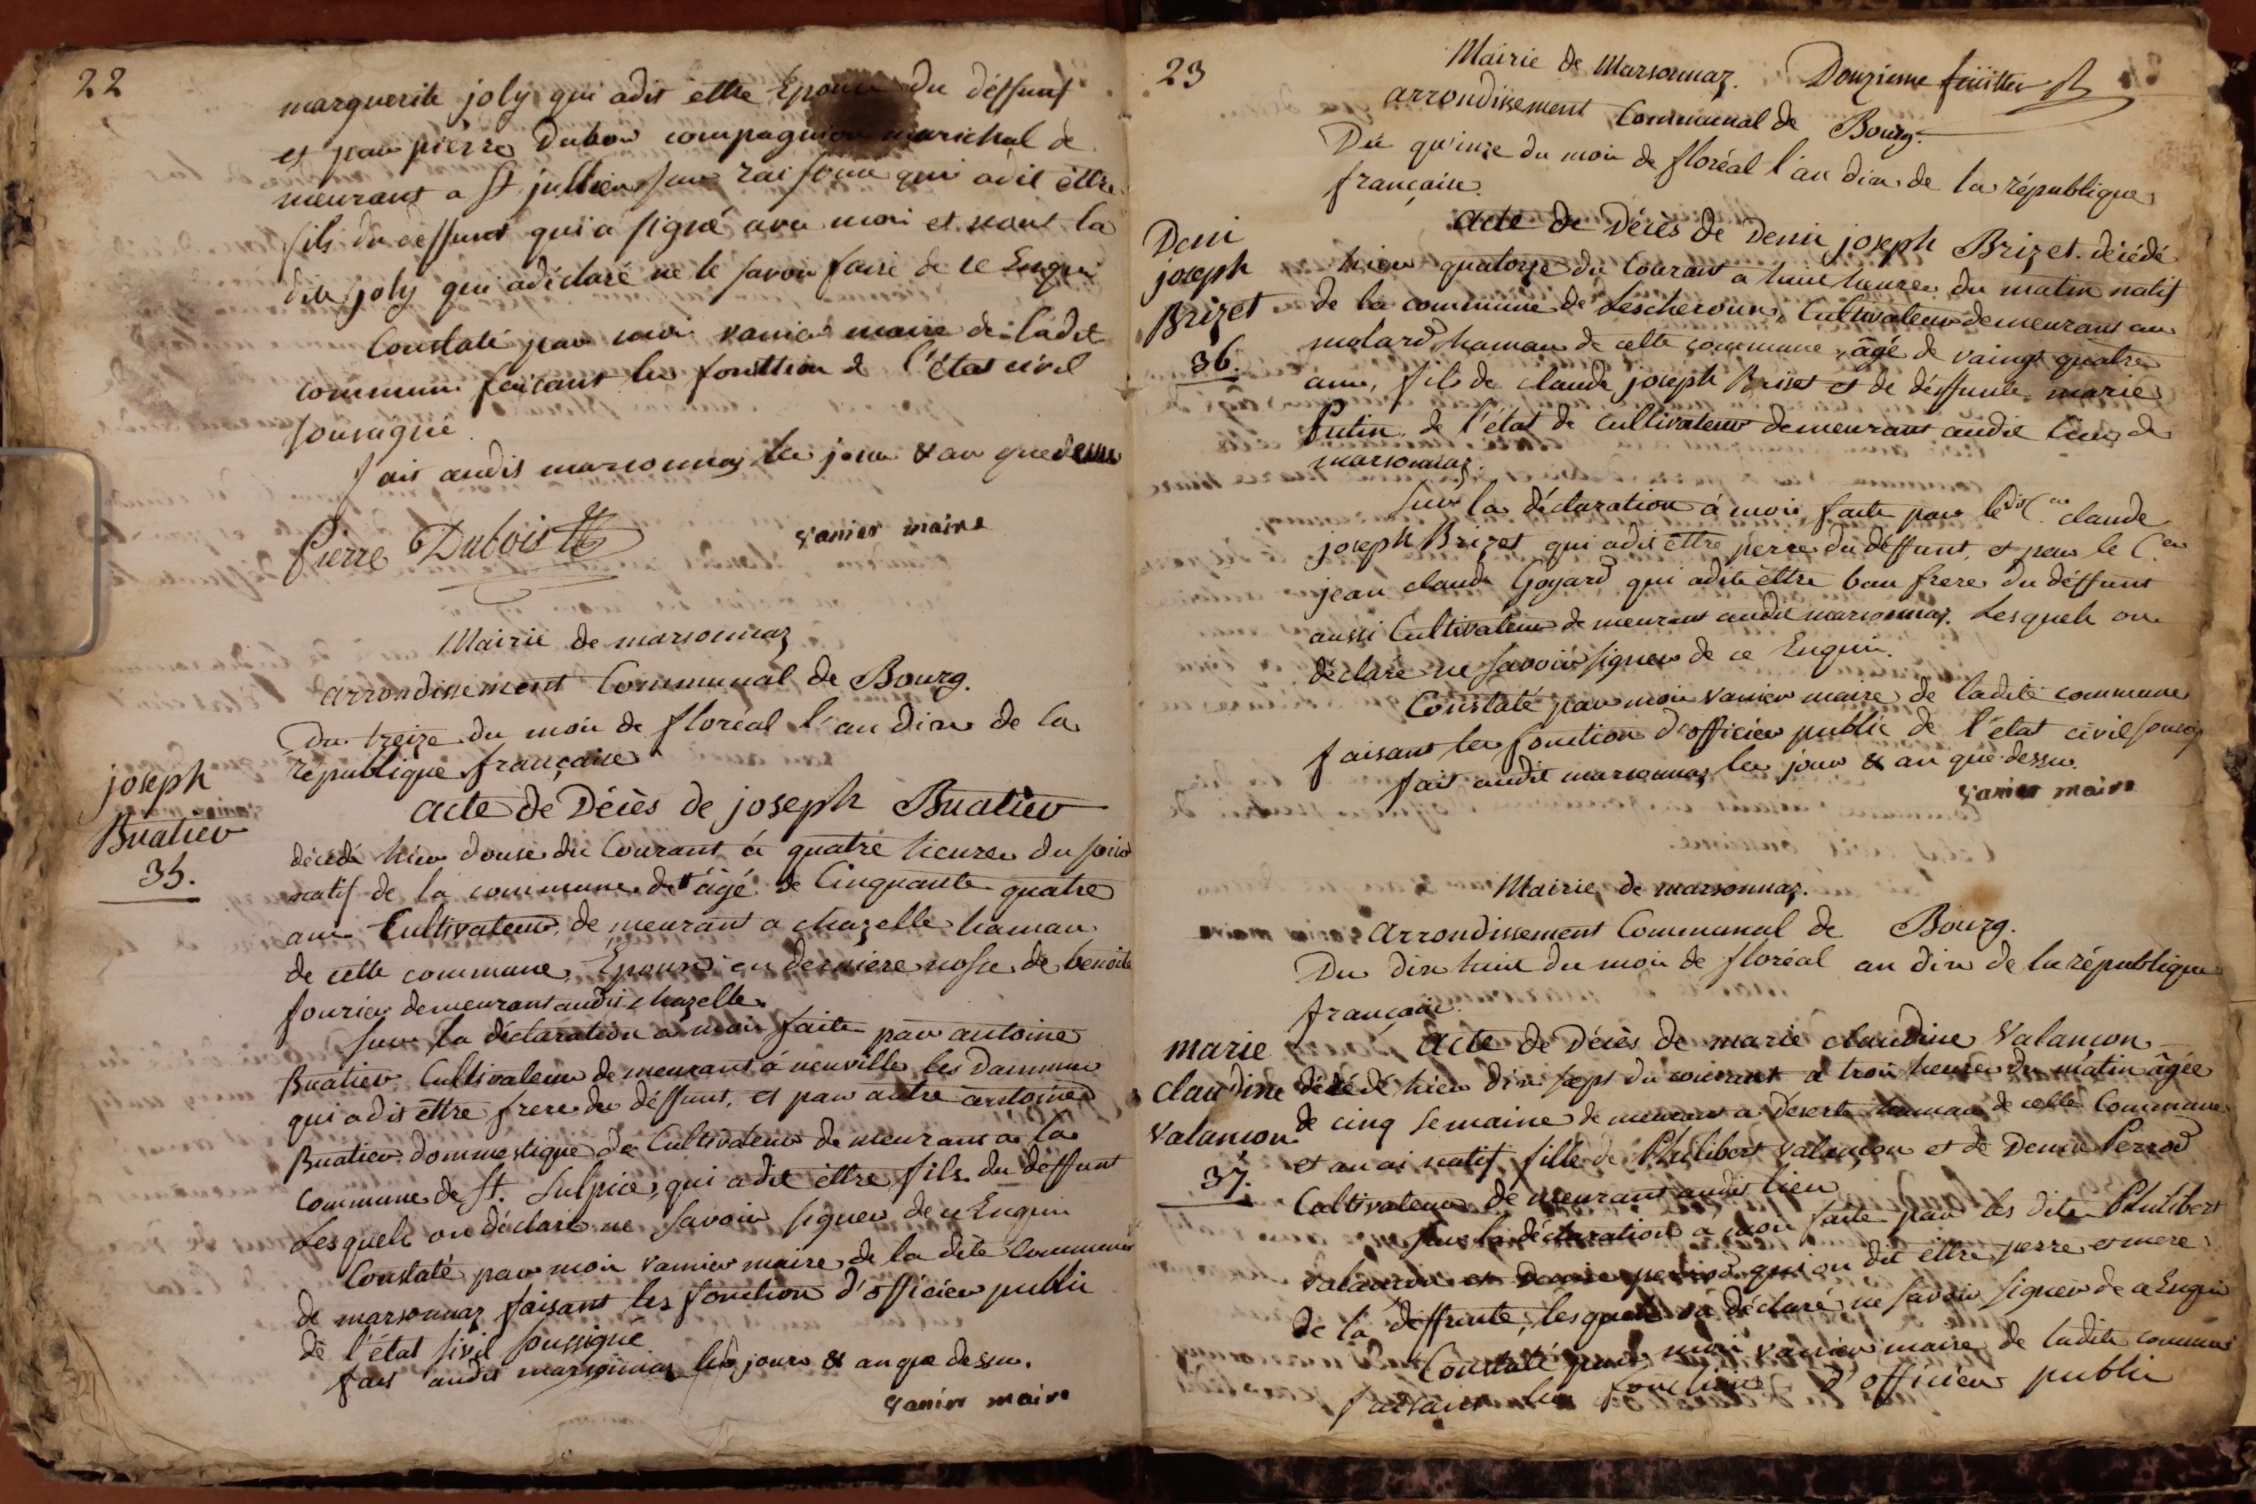 22
marguerite joly qui adit ettre Epouse du déffunt
et jean pierre Dubois compagnion marichal de
meurant a St jullien sur raisouse qui adit ettre
fils du deffunt qui a signé avec moi et nont la
dite joly qui adéclaré ne le savoir faire de ce Enquis
Constaté par moi vanier maire de ladit
commune faisant les fonittion de l'état civil
sousigné
fait audit marsonnaz les jour & an que dessus
Pierre Dubois
vanier maire
Mairie de marsonnaz
arrondissement Communal de Bourg.
Du treize du mois de floréal l'an dix de la
republique française
joseph
Buatier
35.
acte de Décès de joseph Buatier
décédé hier douse du Courant à quatre heures du soir
natif de la commune de âgé de Cinquante quatre
ans Cultivateur, de meurant a chazelle hamau
de cette commune, Epoux en derniere nosse de benoite
fourier demeurant audit chazelle
sur la déclaration a moi faite par antoine
Buatier Cultivateur de meurant á neuville les Dammes
qui adit ettre frere du déffunt, et par autre antoine
Buatier dommestique de Cultivateur de meurant a la
commune de St. Sulpice, qui adit ettre fils du deffunt
Lesquels on déclaré ne savoir signer de ce Enquis
Constaté par moi vanier maire de la dite Commune
de marsonnaz faisant les fonction d'officier public
de l'état sivil soussigné
fait audit marsonnaz les jours & an que dessus.
vanier maire
23
Mairie de Marsonnaz. Douzieme feüillet
arrondissement Communal de Bourg.
Du quinze du mois de floréal l'an dix de la république
française.
Deni
joseph
Brizet
36.
acte de Décès de Deni joseph Brizet. décédé
hier quatorze du Courant a huit heures du matin natif
de la commune de Lescheroux, Cultivateur demeurant au
molard hamau de cette commune, âgé de vaingt quatre
ans, fils de claude joseph Briset et de déffunte marie
Putin de l'état de Cultivateur demeurant audit lieu de
marsonnaz.
Sur la déclaration à moi faite par ledit C.en claude
joseph Brizet qui adit ettre perre du déffunt, et par le C.en
jean claude Goyard qui adite ettre bau frere du déffunt
aussi Cultivateur de meurant audit marsonnaz. Lesquels on
déclaré ne savoir signer de ce Enquis.
Constaté par moi vanier maire de ladite commune
faisant les fonction d'officier public de l'état civil sousig
fait audit marsonnaz les jour & an que dessu
vanier maire
Mairie de marsonnaz.
arrondissement Communal de Bourg.
Du dix huit du mois de floréal an dix de la république
française.
marie
claudine
valancon
37.
Acte de Décès de marie claudine Valançon
décédé hier dix sept du courant a trois heures du matin âgée
de cinq semaine de meurant a Déserte hamau de cette Commune
et an ai natif fille de Philibert valançon et de Denise Perrod
Cultivateur de meurant audit lieu
Sur la déclaration à moi faite par les dite Philibert
valancon et Denise perrod qui on dit ettre perre et mere
de la deffunte, lesquels on déclaré ne savoir signer de ce Enquis
Constaté par moi vanier maire de ladite commune
faisant les fonction d'officier public